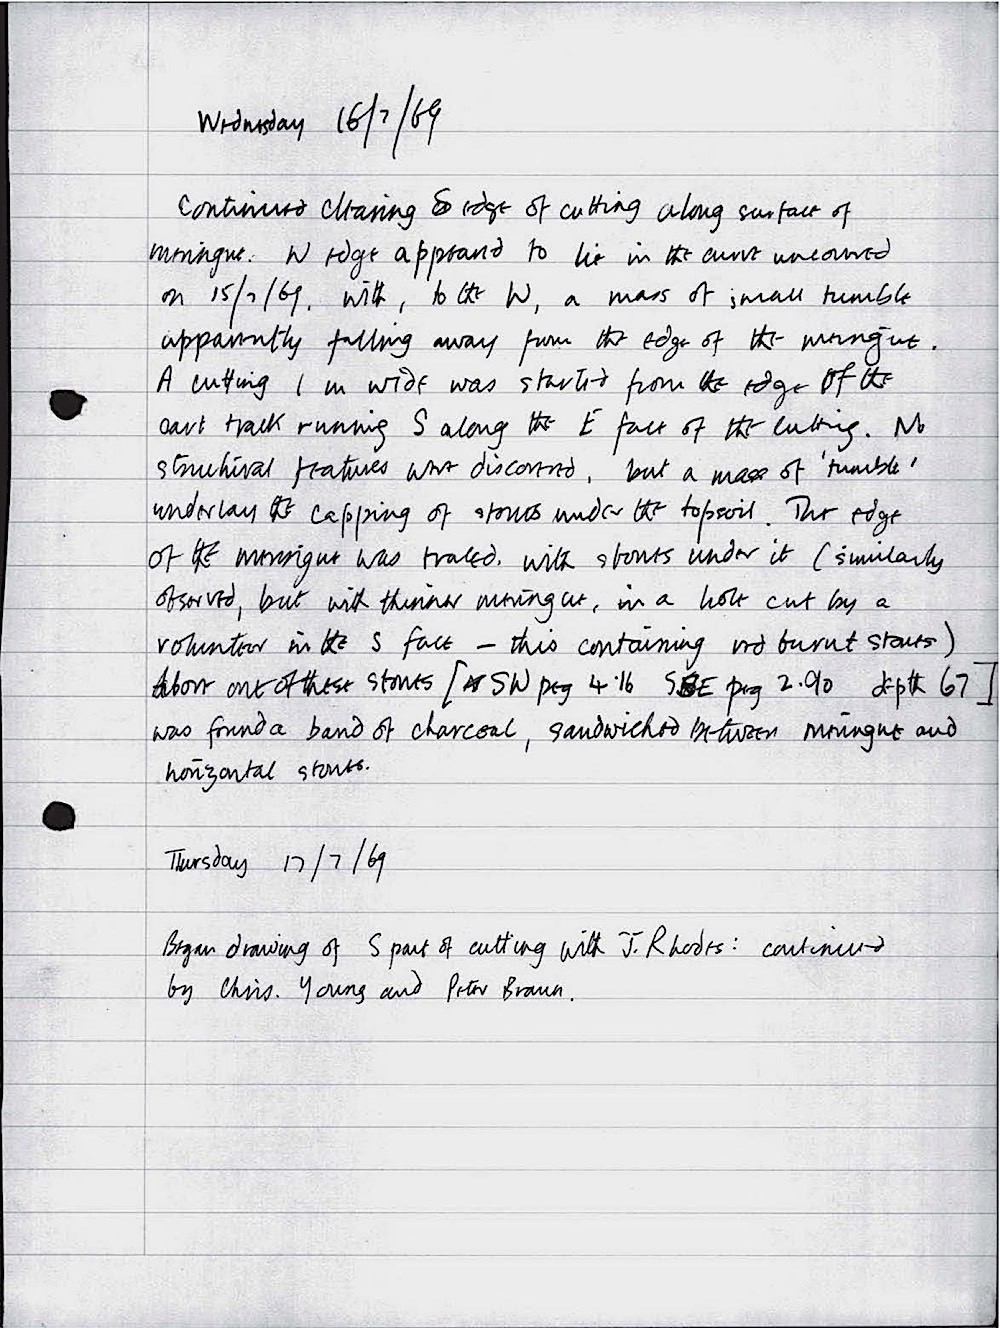 Wednesday 16/7/69
Continued clearing S edge of cutting along surface of
meringue. W edge appeared to lie in the curve uncovered
on 15/7/69, with, to the W, a mass of small tumble
apparently falling away from the edge of the meringue.
A cutting 1 m wide was started from the edge of the
cart track running S along the E face of the cutting. No
structural features were discovered, but a mass of 'tumble'
underlay the capping of stones under the topsoil. The edge
of the meringue was traced, with stones under it (similarly
observed, but with thinner meringue, in a hole cut by a
volunteer in the S face – this containing red burnt stones)
Above one of these stones [SW peg 4.16 SE peg 2.90 depth 67]
was found a band of charcoal, sandwiched between meringue and
horizontal stones.
Thursday 17/7/69
Began drawing of S part of cutting with J. Rhodes: continued
by Chris. Young and Peter Braun.